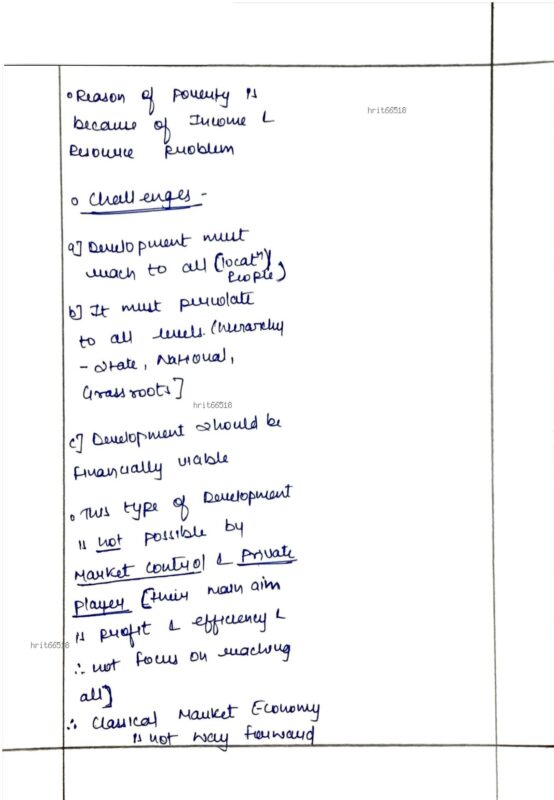 • Reason of Poverty is
because of Income &
Resource Problem
hrit66518
• Challenges -
a] Development must
reach to all (locatⁿ/
People)
b] It must percolate
to all levels. (hierarchy
- State, National,
Grassroots]
hrit66518
c] Development should be
financially viable
• This type of Development
is not possible by
Market Control & Private
Player [their main aim
is profit & efficiency &
hrit66518
∴ not focus on reaching
all]
∴ Classical Market Economy
is not way forward